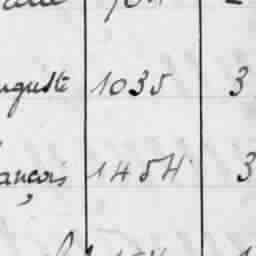 uguste 1035 3
ançois 1454 3